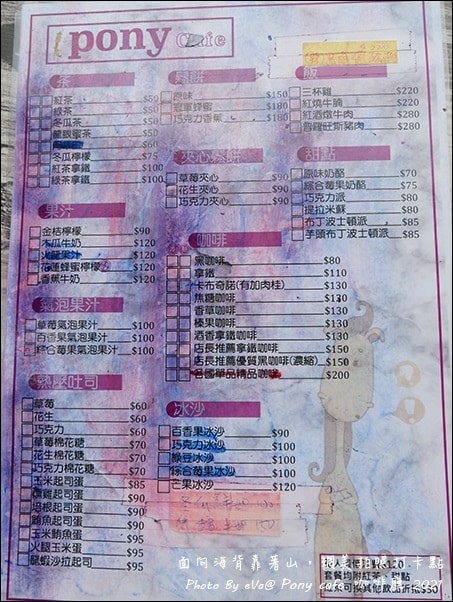 pony Cafe
茶
紅茶 $50
綠茶 $50
冬瓜茶 $50
龍眼蜜茶 $50
冬瓜檸檬 $75
紅茶拿鐵 $100
綠茶拿鐵 $100
果汁
金桔檸檬 $90
木瓜牛奶 $120
火龍果汁 $120
花蓮蜂蜜檸檬 $120
香蕉牛奶 $120
氣泡果汁
草莓氣泡果汁 $100
百香果氣泡果汁 $100
綜合莓果氣泡果汁 $100
熱壓吐司
草莓 $60
花生 $60
巧克力 $60
草莓棉花糖 $70
花生棉花糖 $70
巧克力棉花糖 $70
玉米起司蛋 $85
燻雞起司蛋 $90
培根起司蛋 $90
鮪魚起司蛋 $90
玉米鮪魚蛋 $95
火腿玉米蛋 $95
龍蝦沙拉起司 $95
鬆餅
原味 $150
冠軍蜂蜜 $180
巧克力香蕉 $180
夾心鬆餅
草莓夾心 $90
花生夾心 $90
巧克力夾心 $90
咖啡
黑咖啡 $80
拿鐵 $110
卡布奇諾(有加肉桂) $130
焦糖咖啡 $130
香草咖啡 $130
榛果咖啡 $130
酒香拿鐵咖啡 $150
店長推薦拿鐵咖啡 $150
店長推薦優質黑咖啡(濃縮) $150
各國單品精品咖啡 $200
冰沙
百香果冰沙 $90
巧克力冰沙 $100
綠豆冰沙 $100
綜合莓果冰沙 $100
芒果冰沙 $120
飯
三杯雞 $220
紅燒牛腩 $220
紅酒燉牛肉 $280
普羅旺斯豬肉 $280
甜點
原味奶酪 $70
綜合莓果奶酪 $75
巧克力派 $80
提拉米蘇 $80
布丁波士頓派 $85
芋頭布丁波士頓派 $85
每人低消$120
套餐均附紅茶、甜點
亦可換其他飲品折抵$50
面向海背靠著山，
卡點
Photo By eVa@ Pony cafe
2021